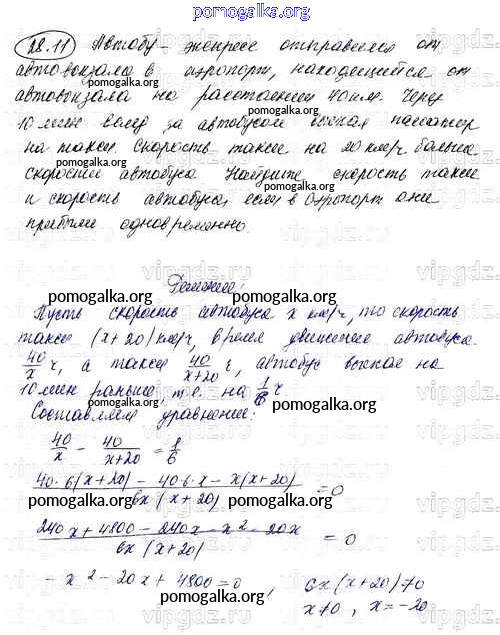 pomogalka.org
28.11 Автобус-экспресс отправился от
автовокзала в аэропорт, находящийся от
автовокзала на расстоянии 40 км. Через
10 мин вслед за автобусом выехал пассажир
на такси. Скорость такси на 20 км/ч больше
скорости автобуса Найдите скорость такси
и скорость автобуса, если в аэропорт они
прибыли одновременно
Решение:
pomogalka.org pomogalka.org
Пусть скорость автобуса x км/ч, то скорость
такси (x+20) км/ч, время движения автобуса
40/x ч, а такси 40/(x+20) ч, автобус выехал на
10 мин раньше, т.е. на 1/6 ч
Составляем уравнение: pomogalka.org
40/x - 40/(x+20) = 1/6
(40·6(x+20) - 40·6·x - x(x+20))/(6x(x+20)) = 0
pomogalka.org pomogalka.org
(240x + 4800 - 240x - x² - 20x)/(6x(x+20)) = 0
- x² - 20x + 4800 = 0, 6x(x+20)≠0
pomogalka.org x≠0, x = -20